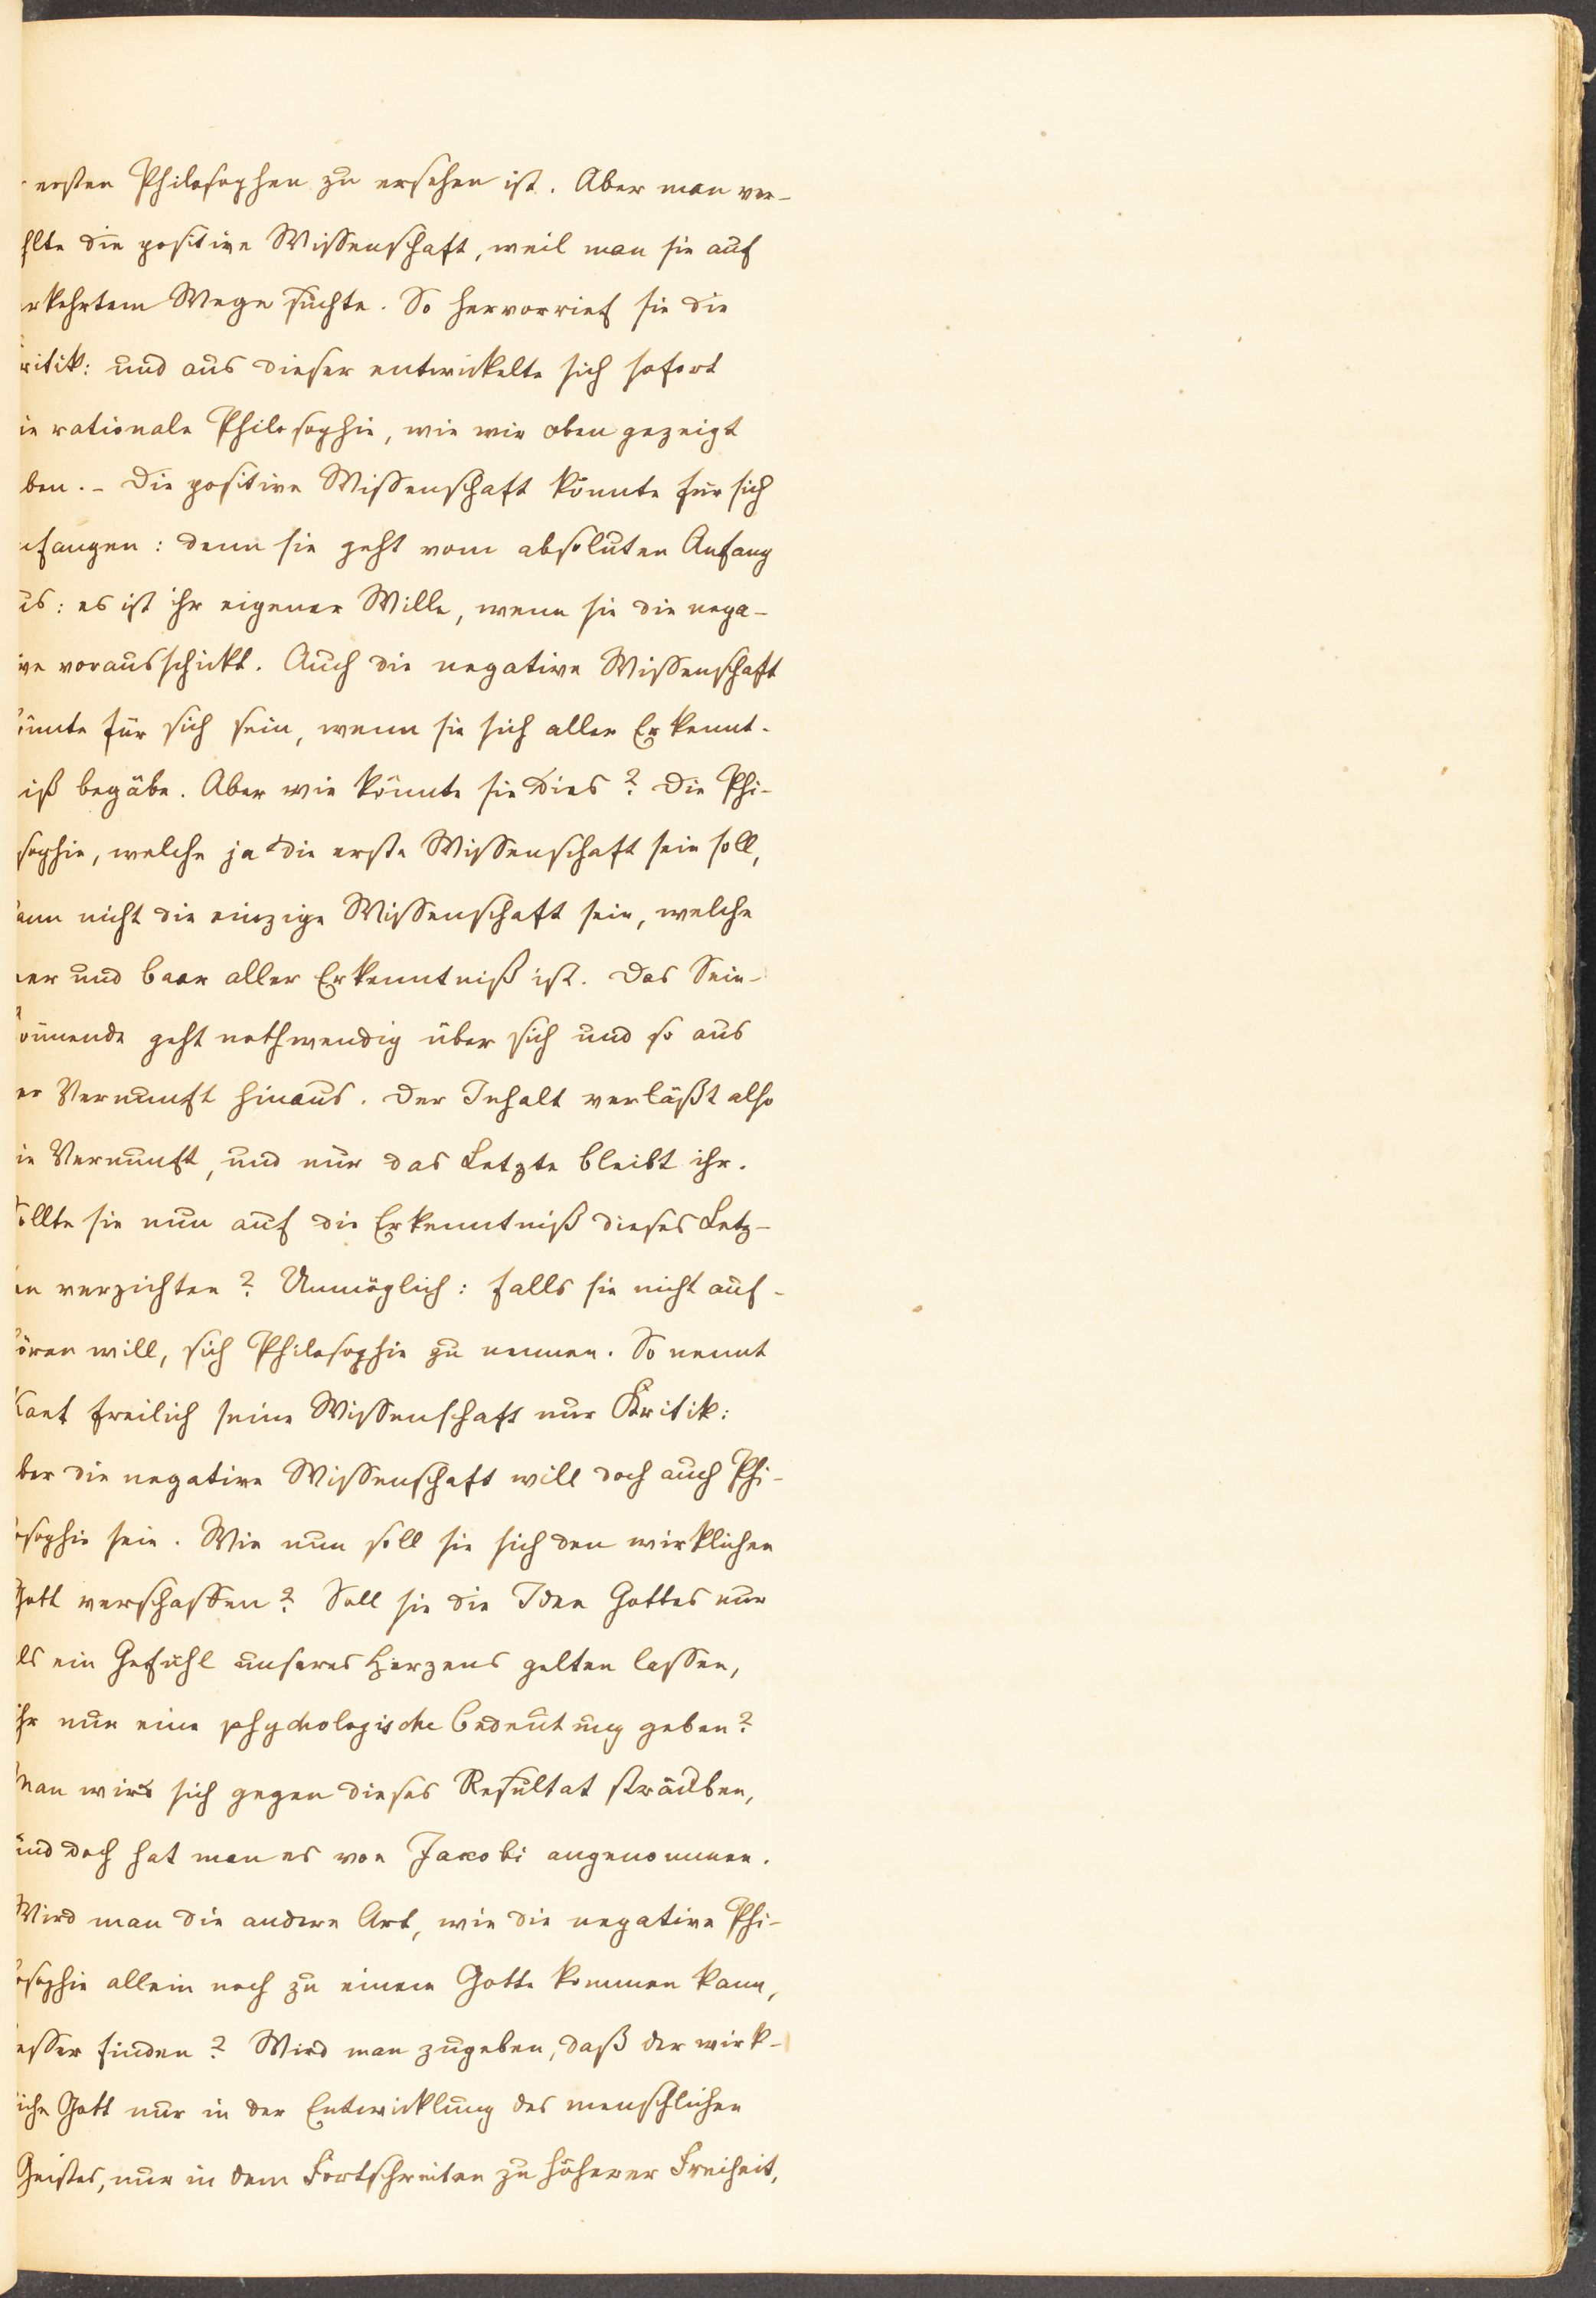 ersten Philosophen zu ersehen ist. Aber man ver-
hlte die positive Wissenschaft, weil man sie auf
rkehrtem Wege suchte. So hervorrief sie die
ritik: und aus dieser entwickelte sich sofort
ie rationale Philosophie, wie wir oben gezeigt
ben. – Die positive Wissenschaft könnte für sich
nfangen: denn sie geht vom absoluten Anfang
us: es ist ihr eigener Wille, wenn sie die nega-
ive vorausschickt. Auch die negative Wissenschaft
önnte für sich sein, wenn sie sich aller Erkennt-
iß begäbe. Aber wie könnte sie dies? Die Phi-
sophie, welche ja die erste Wissenschaft sein soll,
ann nicht die einzige Wissenschaft sein, welche
er und baar aller Erkenntniß ist. Das Sein-
önnende geht nothwendig über sich und so aus
er Vernunft hinaus. Der Inhalt verläßt also
ie Vernunft, und nur das Letzte bleibt ihr.
ollte sie nun auf die Erkenntniß dieses Letz-
en verzichten? Unmöglich: falls sie nicht auf-
ören will, sich Philosophie zu nennen. So nennt
Kant freilich seine Wissenschaft nur Kritik:
ber die negative Wissenschaft will doch auch Phi-
osophie sein. Wie nun soll sie sich den wirklichen
Gott verschaffen? Soll sie die Idee Gottes nur
ls ein Gefühl unseres Herzens gelten lassen,
ihr nur eine phychologische Bedeutung geben?
Man wird sich gegen dieses Resultat sträuben,
und doch hat man es von Jacobi angenommen.
Wird man die andere Art, wie die negative Phi-
osophie allein noch zu einem Gotte kommen kann,
esser finden? Wird man zugeben, daß der wirk-
iche Gott nur in der Entwicklung des menschlichen
Geistes, nur in dem Fortschreiten zu höherer Freiheit,